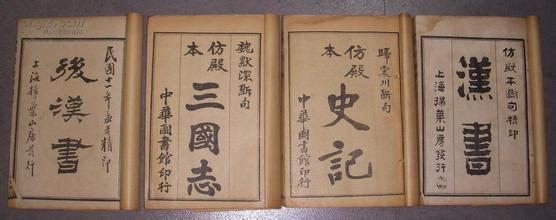 仿殿本斷句精印
漢書
上海掃葉山房發行
歸震川断句
仿殿本
史記
中華圖書館印行
魏默深断句
仿殿本
三國志
中華圖書館印行
民國十年精印
後漢書
上海掃葉山房發行